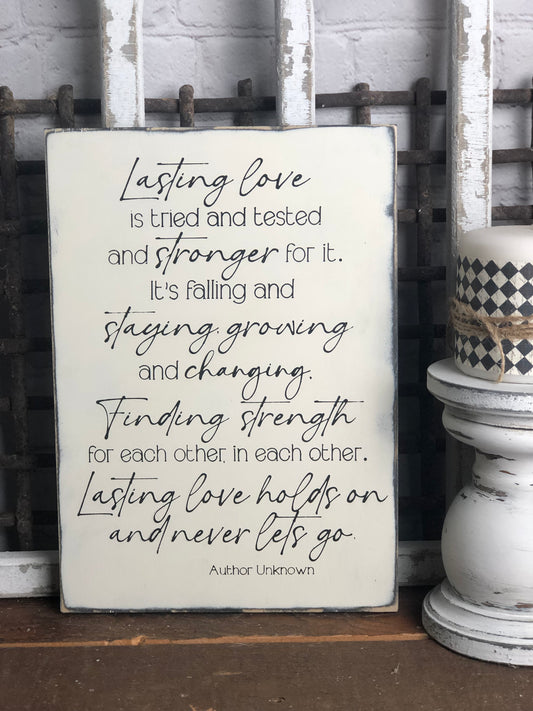 Lasting love
is tried and tested
and stronger for it.
It's falling and
staying, growing
and changing.
Finding strength
for each other, in each other.
Lasting love holds on
and never lets go.
Author Unknown